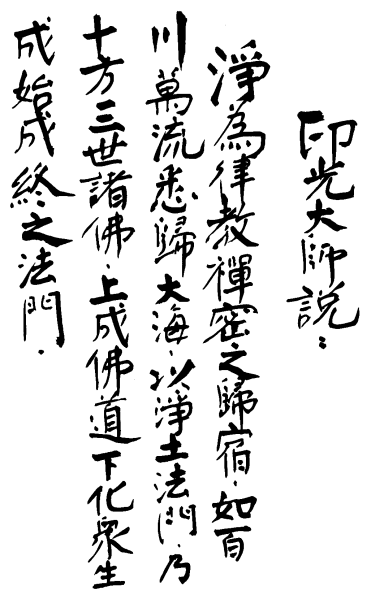 印光大師說：
淨為律教禪密之歸宿．如百
川萬流悉歸大海．以淨土法門．乃
十方三世諸佛．上成佛道下化眾生
成始成終之法門．